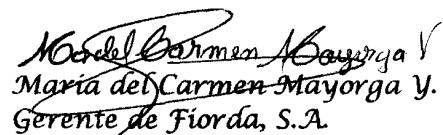 M del Carmen Mayorga V
María del Carmen Mayorga Y.
Gerente de Fiorda, S.A.